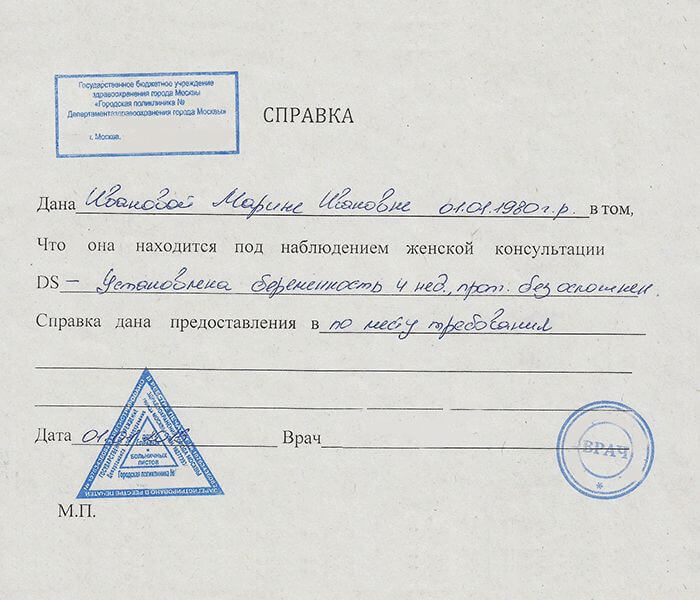 Государственное бюджетное учреждение
здравоохранения города Москвы
«Городская поликлиника №
Департамента здравоохранения города Москвы»
г. Москва.
СПРАВКА
Дана Ивановой Марине Ивановне 01.01.1980 г.р. в том,
Что она находится под наблюдением женской консультации
DS – Установлена беременность 4 нед., прот. без осложнен.
Справка дана предоставления в по месту требования
Дата 01. Врач
ВРАЧ
*
больничных
листов
Городская поликлиника №
ЗАРЕГИСТРИРОВАНО В РЕЕСТРЕ ПЕЧАТЕЙ
М.П.